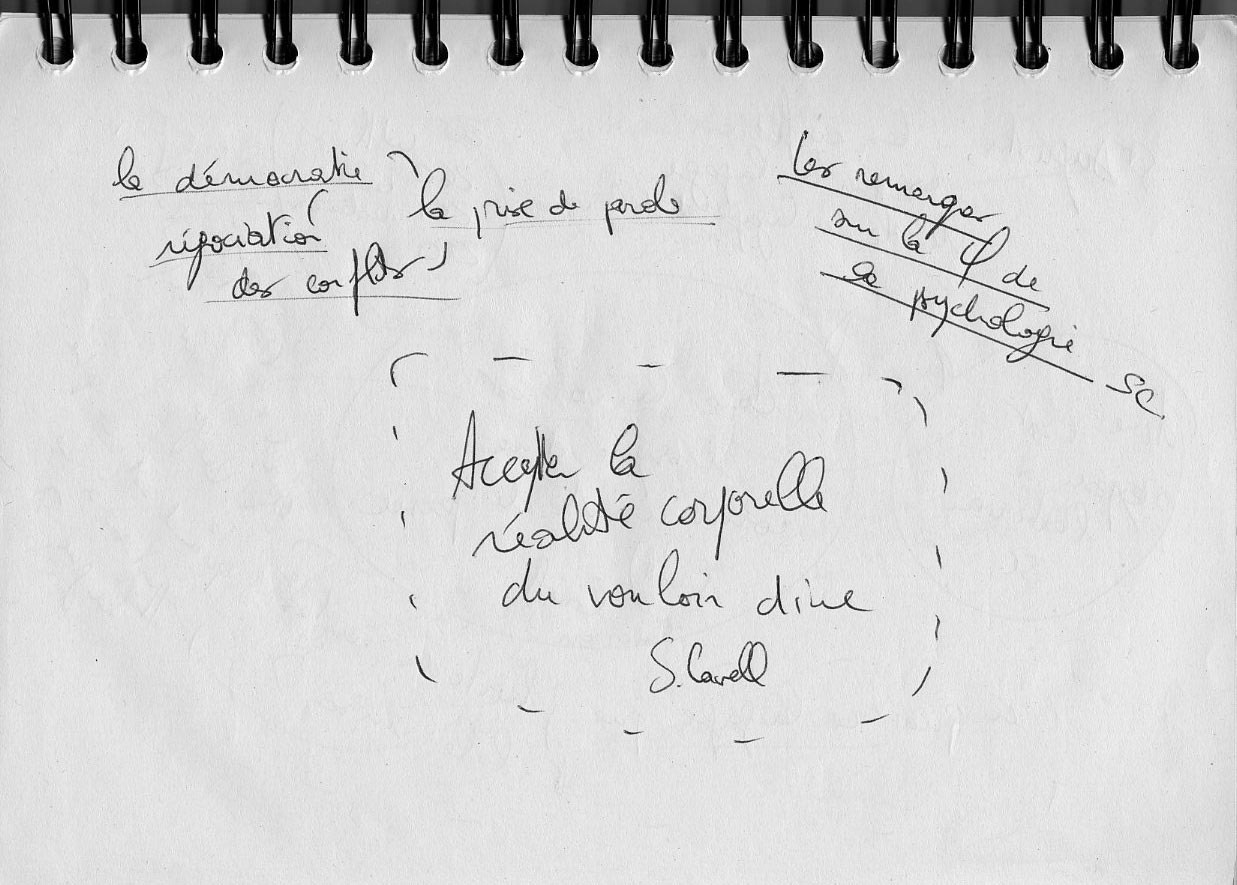 la démocratie
négociation
des conflits
la prise de parole
Les remarques
sur la φ de
la psychologie
SC.
Accepter la
réalité corporelle
du vouloir dire
S. Cavell